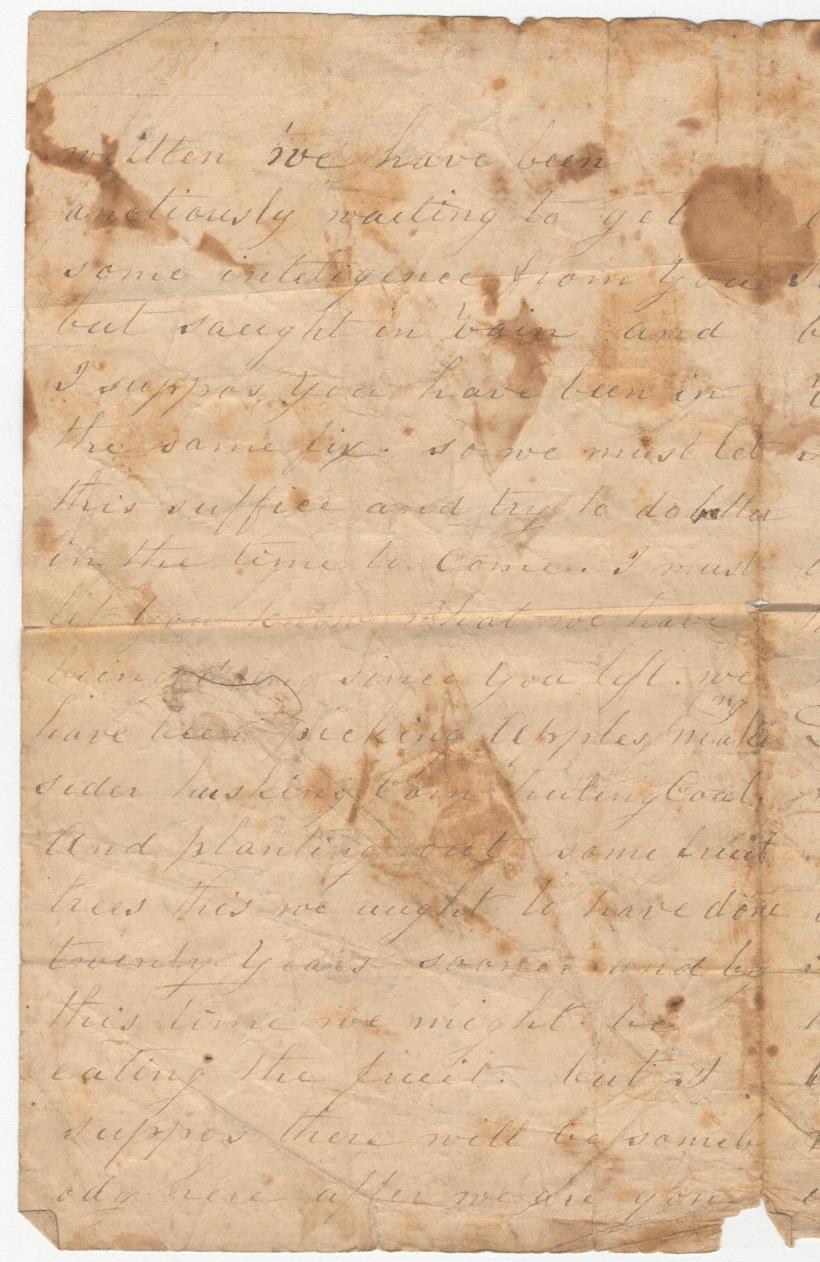 written we have been
anctiously waiting to get
some inteligence from you
but saught in vain and
I suppos you have been in
the same fix. so we must let
this suffice and try to do better
in the time to Come. I must
let you know what we have
being doing since you left. we
have been picking Apples making
sider husking Corn Coal.
And planting out some fruit
trees this we aught to have done
twenty years sooner and by
this time we might be
eating the fruit. but I
suppos there will be someb
ody here after we are gon